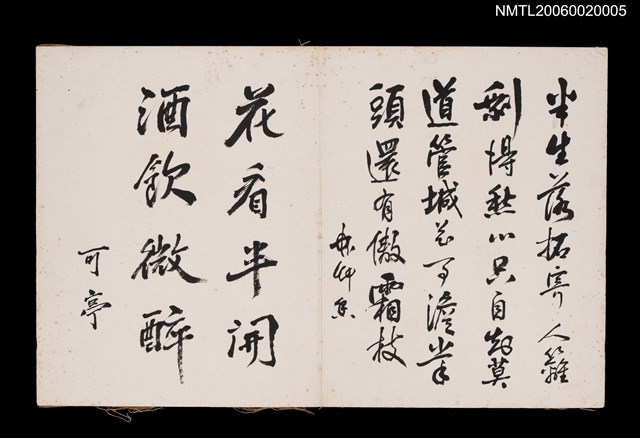 NMTL20060020005
半生落拓寄人籬
剩得愁心只自莫
道管城花事澹筆
頭還有傲霜枝
花看半開
酒飲微醉
可亭